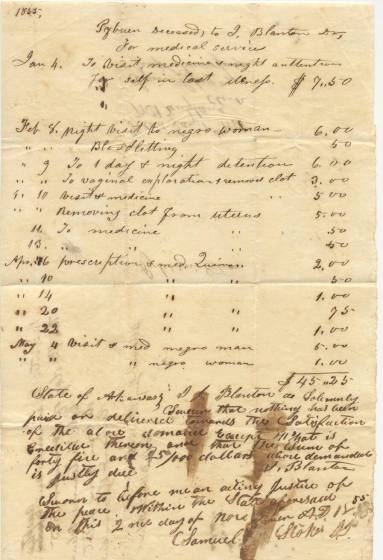 1855.
Pyburn Deceased, to J. Blanton Dr,
For medical service
Jan 4. To Visit, medicine & night attention
For self in last illness. $ 7.50
Feb 8. night visit to negro woman 6.00
" " 50
" 9 To 1 day & night detention 6.00
" " To vaginal exploration & remove clot 3.00
" 10 Visit & medicine " 5.00
" " Removing clot from uterus 5.00
" 11. To medicine " 50
" 13. " " " 50
Apr. prescription & med. 2.00
" 10 " " " 50
" 14 " " " 1.00
" 20 " " " 75
" 22 " " " 1.00
May 4 Visit & med negro man 5.00
" " " " negro woman 1.00
$ 45-25
State of Arkansas J Blanton do Solemnly
Swear that nothing has been
paid or delivered towards the Satisfaction
of the above demand Except what is
Credited thereon and that the Sum of
forty five and 25/100 dollars above demanded
is justly due J. Blanton
Sworn to before me an acting Justice of
the peace within the State aforesaid
on this 2nd day of A.D. 1855
Samuel Stokes